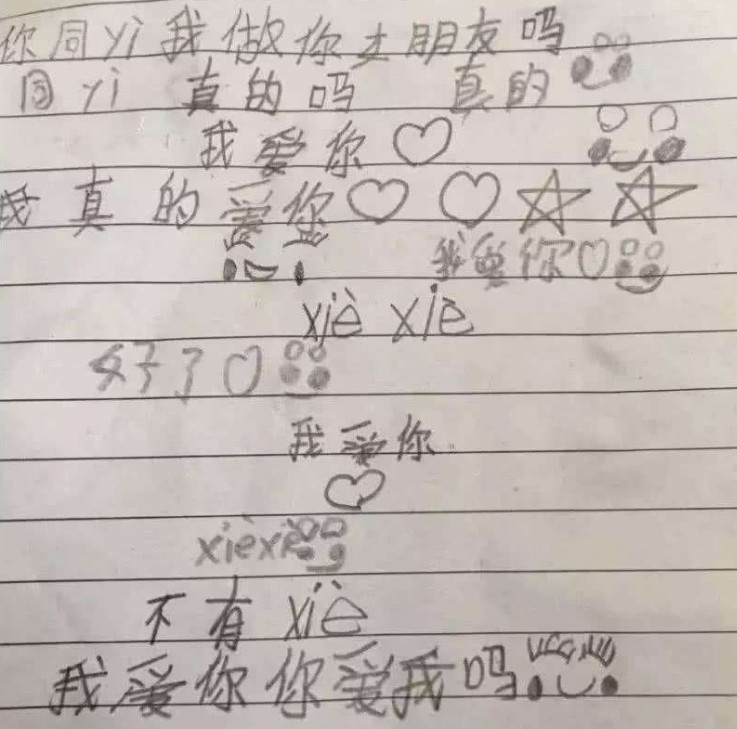 你同yì我做你女朋友吗
同yì 真的吗 真的
我爱你
我真的爱你
我爱你
xiè xiè
好了
我爱你
xièxiè
不有xiè
我爱你你爱我吗